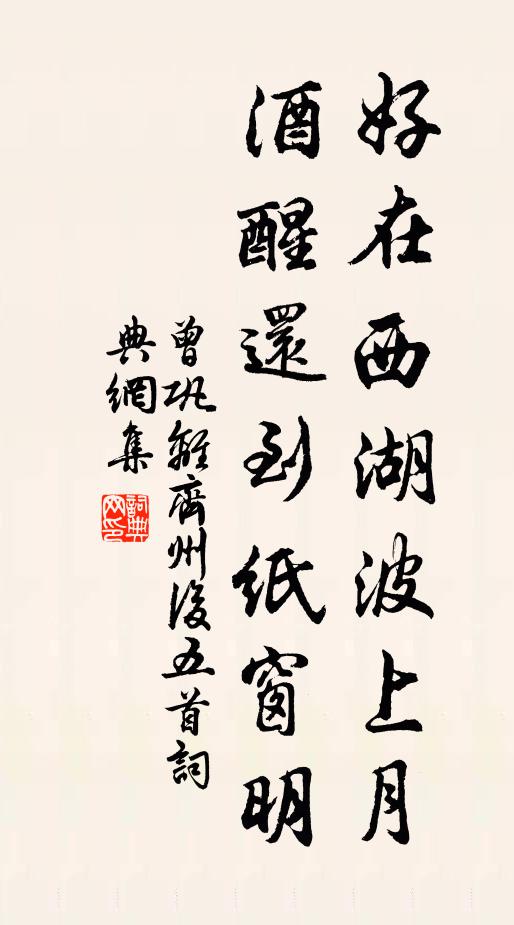 好在西湖波上月
酒醒還到紙窗明
曾巩離齊州後五首詞
典網集
詞典网印